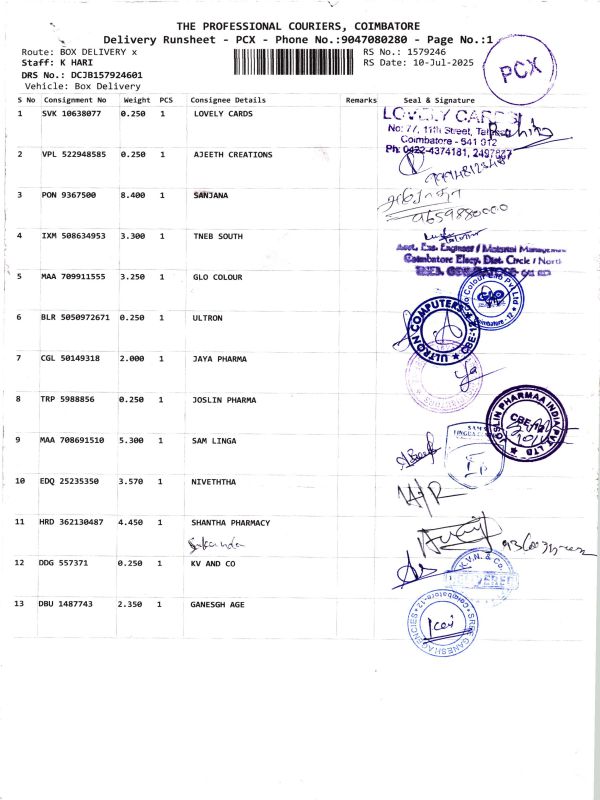 THE PROFESSIONAL COURIERS, COIMBATORE
Delivery Runsheet - PCX - Phone No.:9047080280 - Page No.:1
Route: BOX DELIVERY x RS No.: 1579246
Staff: K HARI RS Date: 10-Jul-2025
DRS No.: DCJB157924601
Vehicle: Box Delivery
PCX
S No Consignment No Weight PCS Consignee Details Remarks Seal & Signature
1 SVK 10638077 0.250 1 LOVELY CARDS
LOVELY CARDS
No: 77, 11th Street,
Coimbatore - 641 012
Ph: 0422-4374181,
2 VPL 522948585 0.250 1 AJEETH CREATIONS
3 PON 9367500 8.400 1 SANJANA
4 IXM 508634953 3.300 1 TNEB SOUTH
Asst. Exe. Engineer / Material Management
Coimbatore Elecy. Dist. Circle / North
5 MAA 709911555 3.250 1 GLO COLOUR
GLO
Coimbatore - 12
6 BLR 5050972671 0.250 1 ULTRON
ULTRON COMPUTERS
CBE-12
7 CGL 50149318 2.000 1 JAYA PHARMA
8 TRP 5988856 0.250 1 JOSLIN PHARMA
JOSLIN PHARMAA INDIA PVT LTD
CBE-12
9 MAA 708691510 5.300 1 SAM LINGA
10 EDQ 25235350 3.570 1 NIVETHTHA
11 HRD 362130487 4.450 1 SHANTHA PHARMACY
12 DDG 557371 0.250 1 KV AND CO
K.V.N. & Co.
DELIVERED
13 DBU 1487743 2.350 1 GANESGH AGE
SREE GANESH AGENCIES
Coimbatore-12